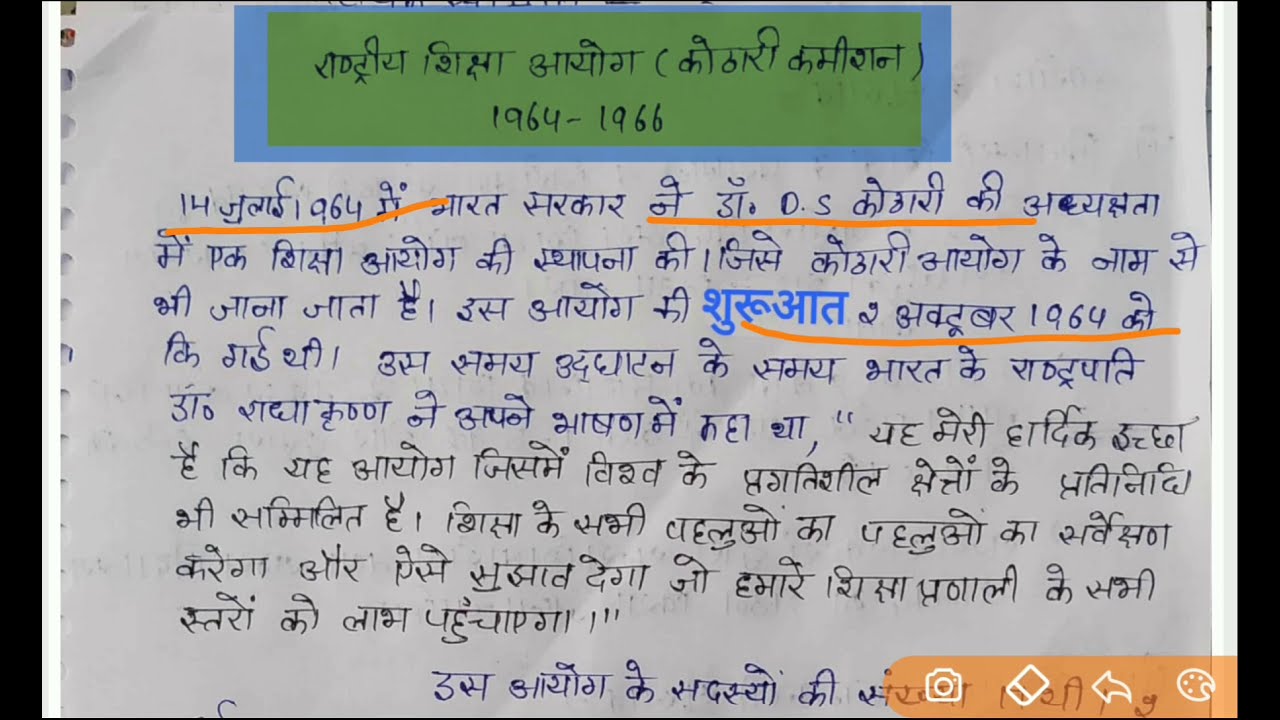 राष्ट्रीय शिक्षा आयोग (कोठारी कमीशन)
1964-1966
14 जुलाई 1964 में भारत सरकार ने डॉ. D.S कोठारी की अध्यक्षता
में एक शिक्षा आयोग की स्थापना की। जिसे कोठारी आयोग के नाम से
भी जाना जाता है। इस आयोग की शुरूआत २ अक्टूबर 1964 को
कि गई थी। उस समय उद्घाटन के समय भारत के राष्ट्रपति
डा० राधाकृष्ण ने अपने भाषण में कहा था, "यह मेरी हार्दिक इच्छा
है कि यह आयोग जिसमें विश्व के प्रगतिशील क्षेत्रों के प्रतिनिधि
भी सम्मिलित है। शिक्षा के सभी पहलुओं का पहलुओं का सर्वेक्षण
करेगा और ऐसे सुझाव देगा जो हमारे शिक्षा प्रणाली के सभी
स्तरों को लाभ पहुँचाएगा।"
उस आयोग के सदस्यों की संख्या